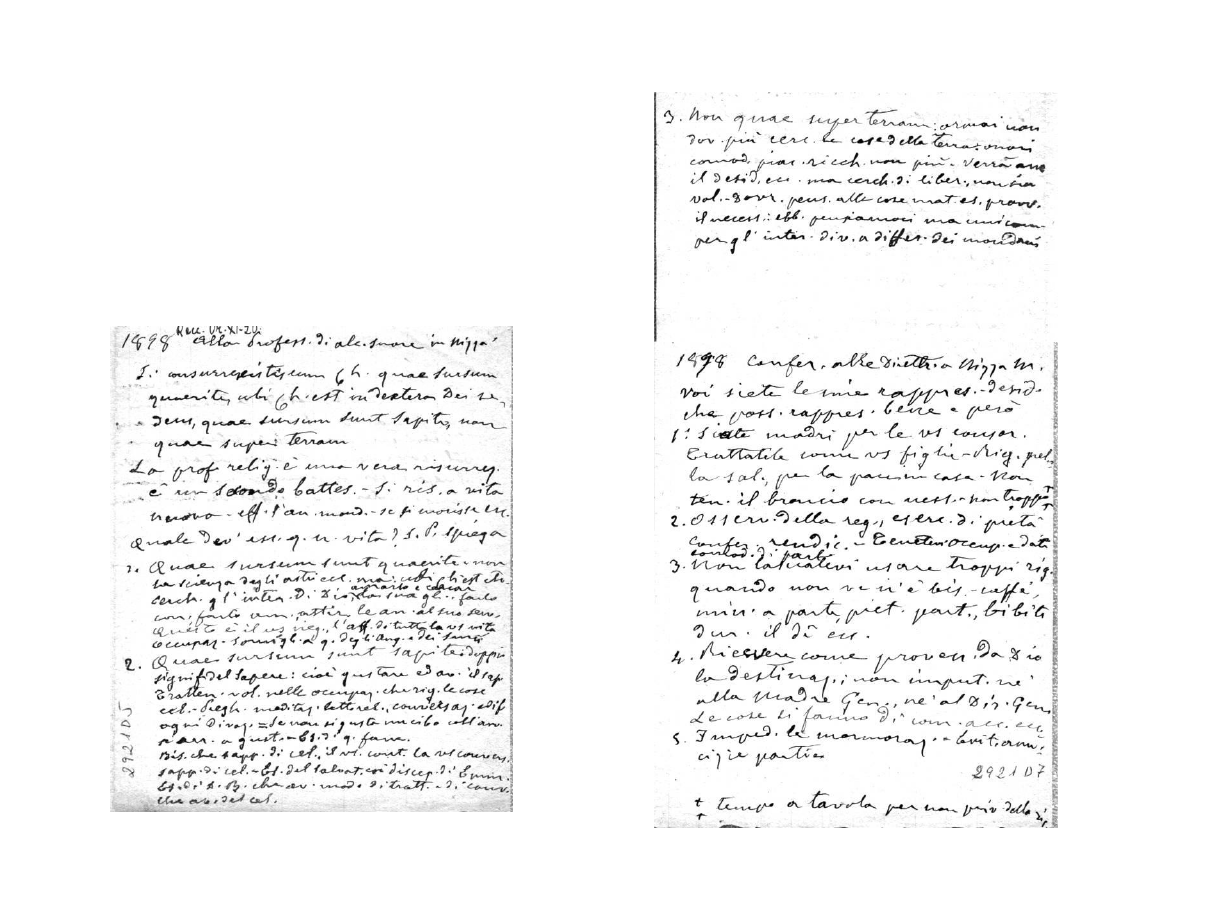 1898 Alla Profess. di alc. suore in Nizza
Si consurrexistis cum Ch. quae sursum
quaerite, ubi Ch. est in dextera Dei se-
dens, quae sursum sunt sapite, non
quae super terram
La prof. relig. è una vera risurrez.
è un secondo battes. - Si ris. a vita
nuova - eff. l'an. mond. - se si
Quale dev' ess. q. n. vita? S. P. spiega
1. Quae sursum sunt quaerite - non
la scienza degli astri ecc. ma: ubi Ch. est etc.
cerch. gl' inter. di Dio, la sua gl. farlo
con. farlo am. attir. le an. al suo serv.
Questo è il vs neg., l'aff. di tutta la vs vita
occupaz. somigl. a q. degli ang. e dei santi
2. Quae sursum sunt sapite: doppio
signif. del sapere: cioè gustare ed av. il sap.
Tratten. vol. nelle occupaz. che rig. le cose
cel. - Pregh. meditaz. lett. rel., conversaz. edif.
ogni divoz. = Se non si gusta un cibo coll'
a gust. - Es. di q. fame.
Bis. che sapp. di cel. il vs. cont. la vs convers.
sapp. di cel. - Es. del Salvat. coi discep. di Emm.
Es. di D. B. che av. modo di tratt. - di conv.
che av. del cel.
2921 D5
3. Non quae super terram: ormai non
dov. più cerc. le cose della terra: onori
comod. piac. ricch. non più. Verrà anc.
il desid. ecc. ma cerch. di liber., non sia
vol. - Dovr. pens. alle cose mat. es. provv.
il necess.: ebb. pensiamoci ma unicam.
per gl' inter. div. a differ. dei mondani
1898 Confer. alle Direttr. a Nizza M.
Voi siete le mie rappres. - desid.
che poss. rappres. bene e però
1° Siate madri per le vs consor.
Trattatele come vs figlie - Rig. pel
la sal., per la pace in casa - Non
ten. il broncio con ness. - non troppo ††
2. Osserv. della reg., eserc. di pietà
confes. rendic. - Tenetevi occup. e date
comod. di parl.
3. Non lasciatevi usare troppi rig.
quando non ve n'è bis. - caffè,
a parte, piet. part., bibite
dur. il dì ecc.
4. Ricevere come proven. da Dio
la destinaz.; non imput. nè
alla Madre Gen., nè al Dir. Gen.
Le cose si fanno di com. acc. ecc.
5. Imped. le mormoraz. - Evit.
partic.
2921 D7
†† tempo a tavola per non priv. della